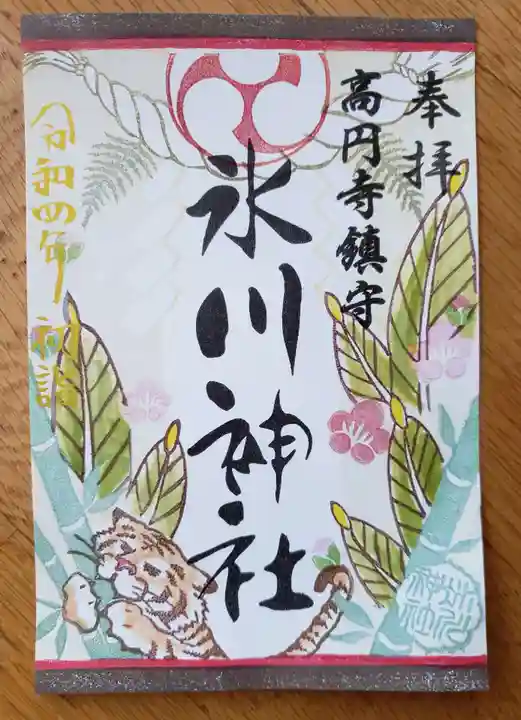 奉拝
高円寺鎮守
氷川神社
令和四年 初詣